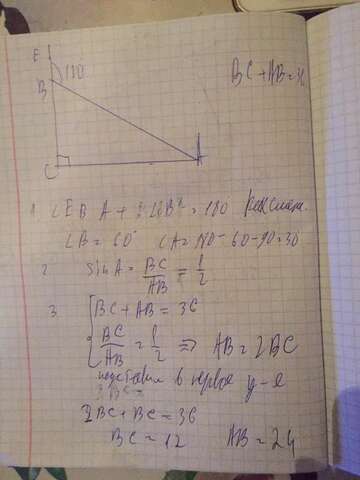 E
120
B
BC + AB = 36
C
A
1. ∠EBA + = 180 как смеж.
∠B = 60° ∠A = 180 - 60 - 90 = 30
2. sin A = BC/AB = 1/2
3. { BC + AB = 36
BC/AB = 1/2 ⇒ AB = 2BC
подставим в первое у-е
2BC + BC = 36
BC = 12 AB = 24